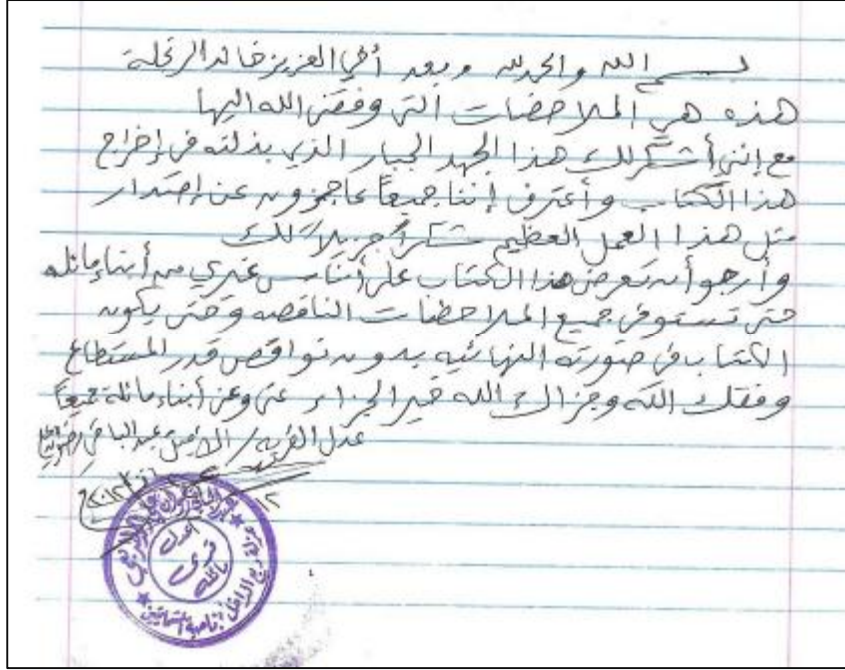 بسم الله والحمدلله وبعد أخي العزيز خالد الرحلة
هذه هي الملاحضات التي وفقني الله اليها
مع إنني أشكرلك هذا الجهد الجبار الذي بذلته في إخراج
هذا الكتاب وأعترف إننا جميعاً عاجزون عن إصدار
مثل هذا العمل العظيم شكراً جزيلاً لك
وأرجو أن تعرض هذا الكتاب على أناس غيري من أبناء ماتله
حتى تستوفي جميع الملاحضات الناقصه وحتى يكون
الكتاب في صورته النهائيه بدون نواقص قدر المستطاع
وفقك الله وجزاك الله خير الجزاء عني وعن أبناء ماتلة جميعاً
عدل القريه / الامين عبدالباقي
قرى